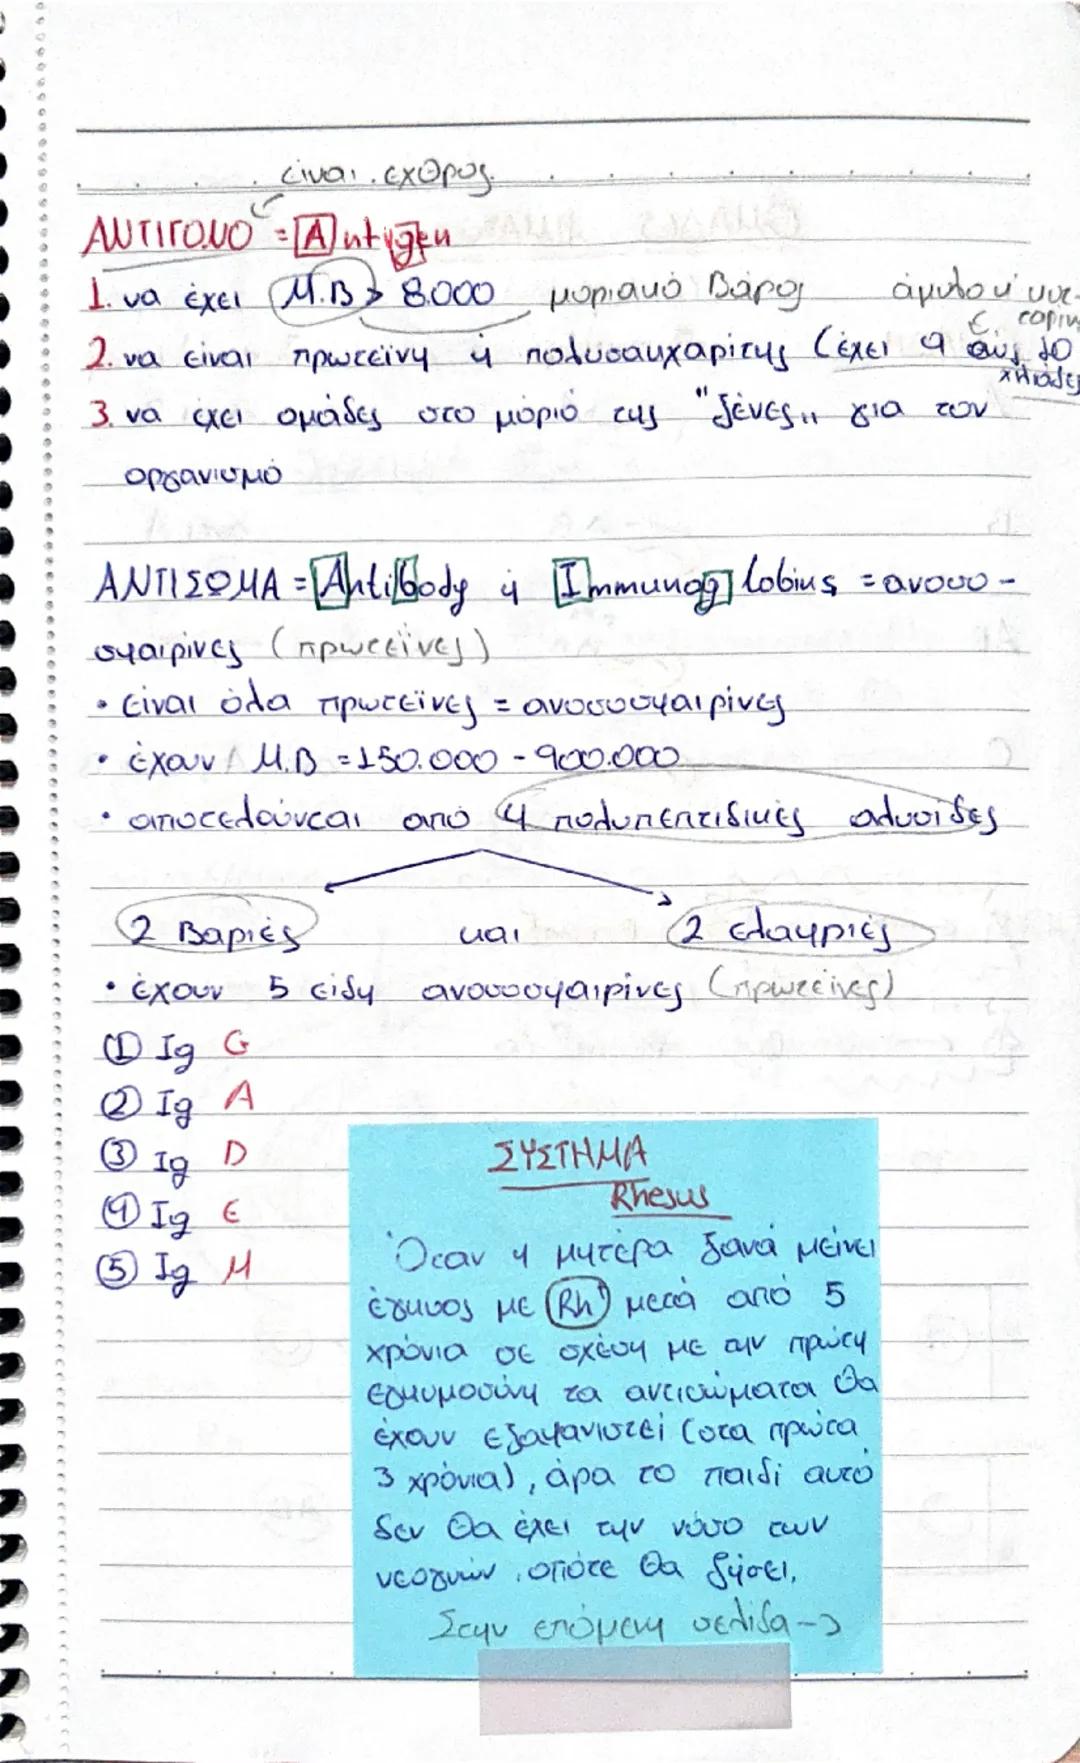 είναι εχθρός.
ΑΝΤΙΓΟΝΟ = Antigen
1. να έχει Μ.Β > 8.000 μοριακό Βάρος άμυλο ή
2. να είναι πρωτεϊνη ή πολυσακχαρίτης (έχει 9 έως 10
χιλιάδες
3. να έχει ομάδες στο μόριο της "ξένες,, για τον
οργανισμό
ΑΝΤΙΣΩΜΑ = Antibody ή Immunoglobins = ανοσο -
σφαιρίνες (πρωτεϊνες)
• είναι όλα πρωτεϊνες = ανοσοσφαιρίνες
• έχουν Μ.Β = 150.000 - 900.000
• αποτελούνται από 4 πολυπεπτιδικές αλυσίδες
2 Βαριές και 2 ελαφριές
• έχουν 5 είδη ανοσοσφαιρίνες (πρωτεϊνες)
① Ig G
② Ig A
③ Ig D
④ Ig E
⑤ Ig M
ΣΥΣΤΗΜΑ
Rhesus
Όταν η μητέρα ξανά μείνει
έγκυος με Rh⁺ μετά από 5
χρόνια σε σχέση με την πρώτη
εγκυμοσύνη τα αντισώματα θα
έχουν εξαφανιστεί (στα πρώτα
3 χρόνια), άρα το παιδί αυτό
δεν θα έχει την νόσο των
νεογνών, οπότε θα ζήσει.
Στην επόμενη σελίδα ->